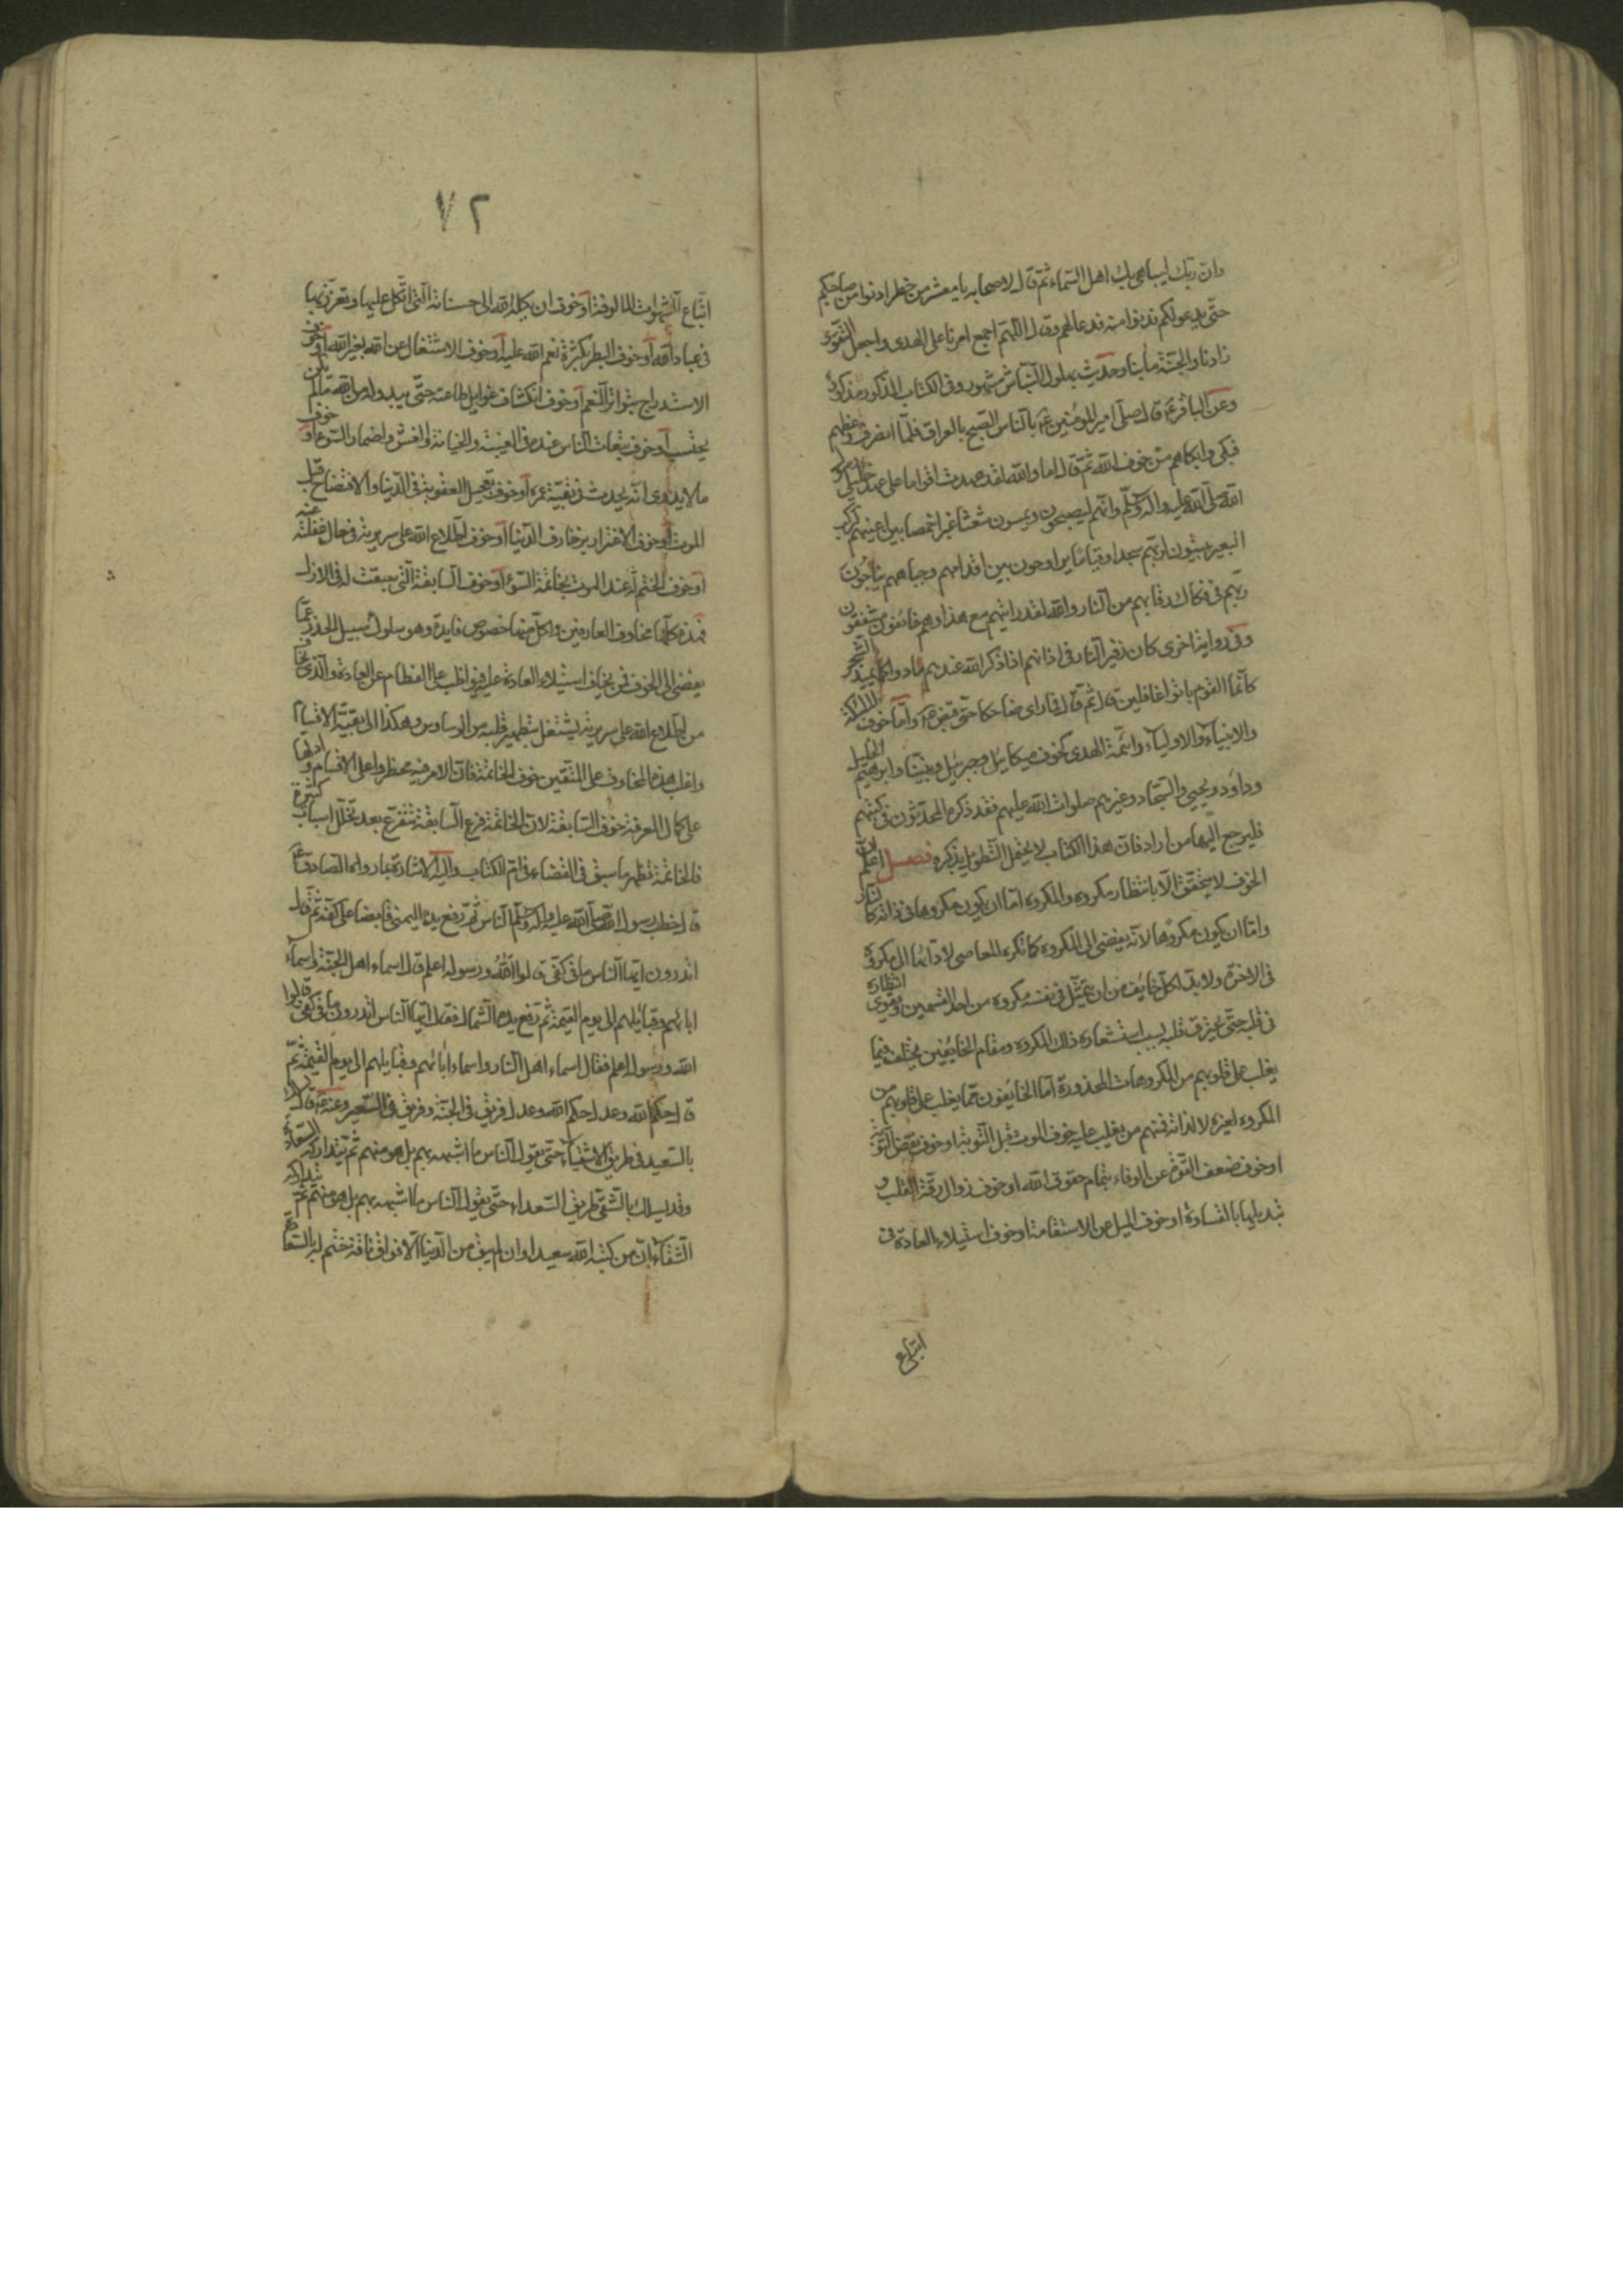 وان ربك ليباهي بك اهل السماء ثم قال لاصحابه يا معشر من حضر ادنوا من صاحبكم
حتى يدعو لكم فدنوا منه فدعا لهم وقال اللهم اجمع امرنا على الهدى واجعل التقوى
زادنا والجنة مآبنا وحديث بهلول النباش مشهور وفي الكتاب المذكور مذكور
وعن الباقر ع قال صلى امير المؤمنين ع بالناس الصبح بالعراق فلما انصرف وعظهم
فبكى وابكاهم من خوف الله ثم قال اما والله لقد عهدت اقواما على عهد خليلي رسول
الله صلى الله عليه واله وسلم وانهم ليصبحون ويمسون شعثا غبرا خمصا بين اعينهم كركب
البعير يبيتون لربهم سجدا وقياما يراوحون بين اقدامهم وجباههم يناجون
ربهم في فكاك رقابهم من النار والله لقد رايتهم مع هذا وهم خائفون مشفقون
وفي رواية اخرى كان زفير النار في اذانهم اذا ذكر الله عندهم مادوا كما يميد الشجر
كانما القوم باتوا غافلين قال ثم قام فما راى ضاحكا حتى قبض ع واما خوف الملائكة
والانبياء والاولياء وائمة الهدى كخوف ميكائيل وجبرئيل ونبينا وابرهيم الخليل
وداود ويحيى والسجاد وغيرهم صلوات الله عليهم فقد ذكره المحدثون في كتبهم
فليرجع اليها من اراد فان هذا الكتاب لا يحتمل التطويل بذكره فصل اعلم ان
الخوف لا يتحقق الا بانتظار مكروه والمكروه اما ان يكون مكروها في ذاته كالنار
واما ان يكون مكروها لانه يفضي الى المكروه كما تكره المعاصي لادائها الى مكروه
في الاخرة ولا بد لكل خائف من ان يتمثل في نفسه مكروه من احد القسمين ويقوى انتظاره
في قلبه حتى يحترق قلبه بسبب استشعاره ذلك المكروه ومقام الخائفين يختلف فيما
يغلب على قلوبهم من المكروهات المحذورة اما الخائفون مما يغلب على قلوبهم من
المكروه لغيره لا لذاته فمنهم من يغلب عليه خوف الموت قبل التوبة او خوف نقض التوبة
او خوف ضعف القوة عن الوفاء بتمام حقوق الله او خوف زوال رقة القلب و
تبديلها بالقساوة او خوف الميل عن الاستقامة او خوف استيلاء العادة في
اتباع
٧٢
اتباع الشهوات المالوفة او خوف ان يكله الله الى حسناته التي اتكل عليها وتعزز بها
في عباد الله او خوف البطر بكثرة نعم الله عليه او خوف الاشتغال عن الله بغير الله او خوف
الاستدراج بتواتر النعم او خوف انكشاف غوايل طاعته حتى يبدو له من الله ما لم يكن
يحتسب او خوف تبعات الناس عنده في الغيبة والخيانة والغش واضمار السوء او خوف
ما لا يدري انه يحدث في بقية عمره او خوف تعجيل العقوبة في الدنيا والافتضاح قبل
الموت او خوف الاغترار بزخارف الدنيا او خوف اطلاع الله على سريرته في حال غفلته عنه
او خوف الختم له عند الموت بخاتمة السوء او خوف السابقة التي سبقت له في الازل
فهذه كلها مخاوف العارفين ولكل منها خصوص فايدة وهو سلوك سبيل الحذر عما
يفضي الى الخوف فمن يخاف استيلاء العادة عليه فيواظب على الفطام عن العادة والذي يخاف
من اطلاع الله على سريرته ليشتغل بتطهير قلبه من الوساوس وهكذا الى بقية الاقسام
واغلب هذه المخاوف على المتقين خوف الخاتمة فان الامر فيه مخطر واعلى الاقسام وادلها
على كمال المعرفة خوف السابقة لان الخاتمة فرع السابقة تتفرع بعد تخلل اسباب كثيرة
فالخاتمة تظهر ما سبق في القضاء في ام الكتاب واليه الاشارة بما رواه الصادق ع
قال خطب رسول الله صلى الله عليه واله وسلم الناس ثم رفع يده اليمنى قابضا على كفه ثم قال
اتدرون ايها الناس ما في كفي قالوا الله ورسوله اعلم قال اسماء اهل الجنة واسماء
ابائهم وقبائلهم الى يوم القيمة ثم رفع يده الشمال فقال ايها الناس اتدرون ما في كفي قالوا
الله ورسوله اعلم فقال اسماء اهل النار واسماء ابائهم وقبايلهم الى يوم القيمة ثم
قال حكم الله وعدل حكم الله وعدل فريق في الجنة وفريق في السعير وعنه ع قال يسلك
بالسعيد في طريق الاشقياء حتى يقول الناس ما اشبهه بهم بل هو منهم ثم يتداركه السعادة
وقد يسلك بالشقي طريق السعداء حتى يقول الناس ما اشبهه بهم بل هو منهم ثم يتداركه
الشقاء ان من كتبه الله سعيدا وان لم يبق من الدنيا الا فواق ناقة ختم له بالسعادة